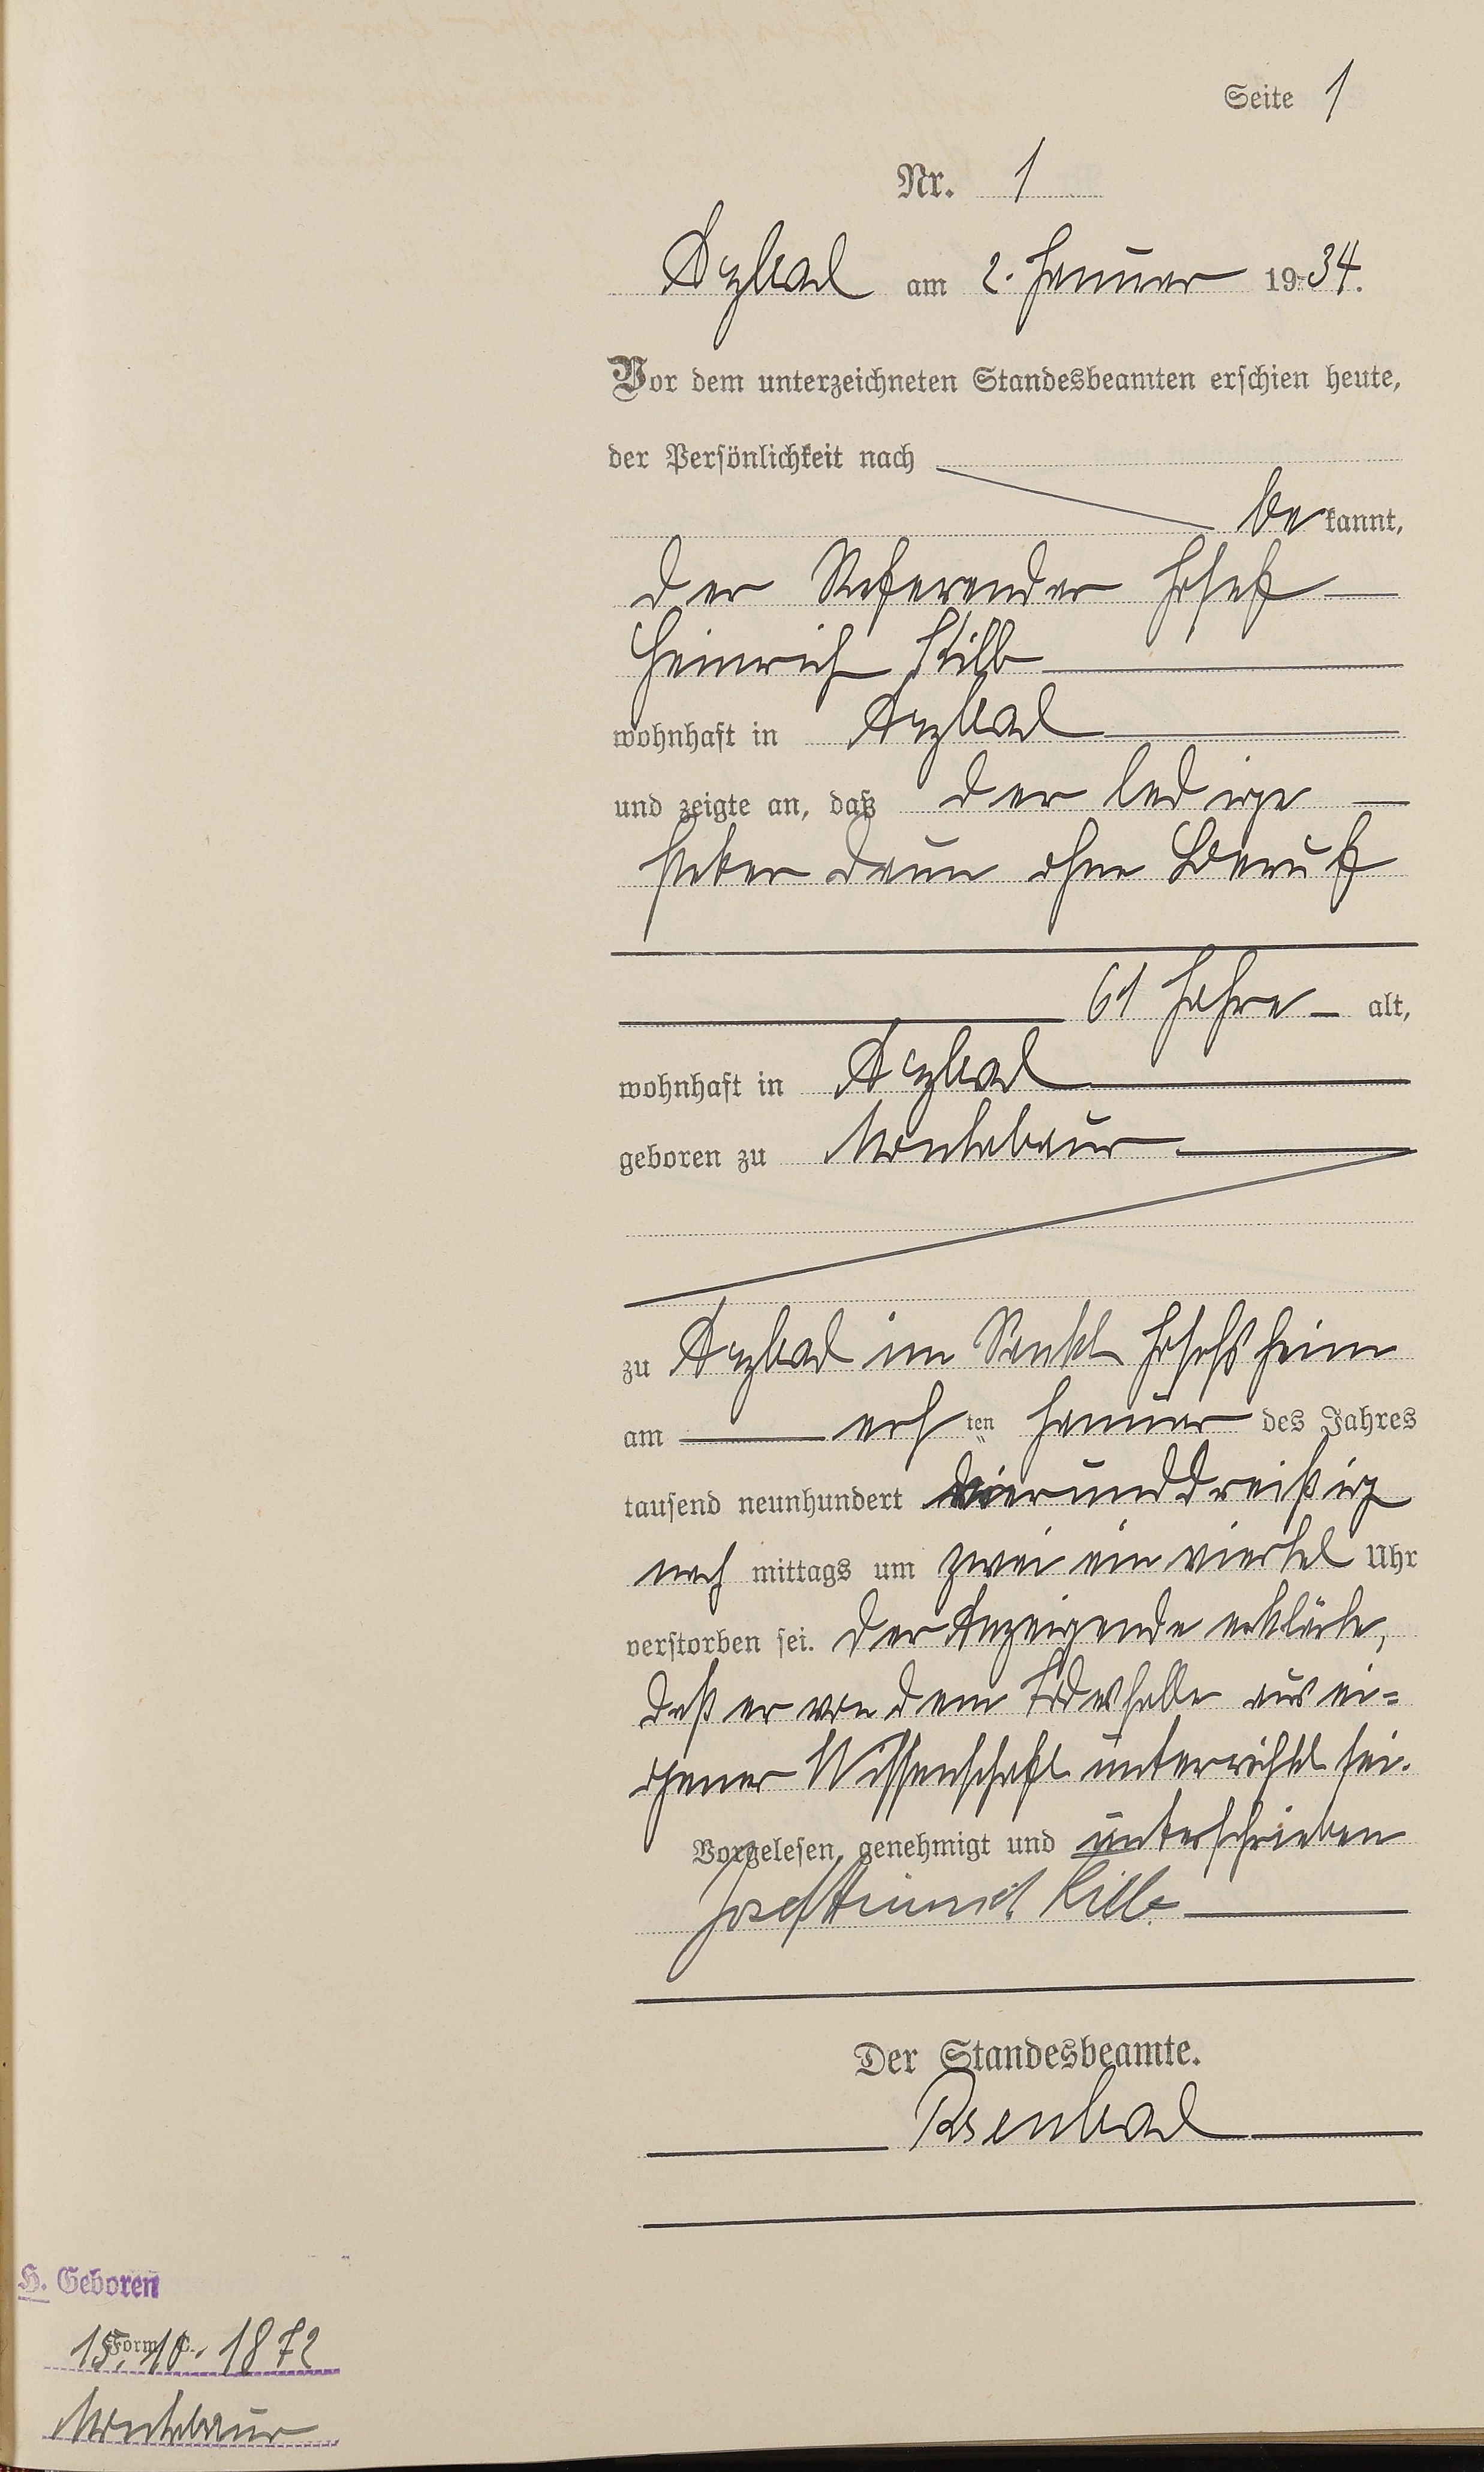 Seite 1
Nr. 1
Arzbach am 2. Januar 1934.
Vor dem unterzeichneten Standesbeamten erschien heute,
der Persönlichkeit nach
bekannt,
der Referendar Josef
Heinrich
wohnhaft in Arzbach
und zeigte an, daß der ledige
Peter Daun ohne Beruf
61 Jahre alt,
wohnhaft in Arzbach
geboren zu Montabaur
zu Arzbach im Sankt Josefsheim
am ersten Januar des Jahres
tausend neunhundert vierunddreißig
nach mittags um zwei ein viertel Uhr
verstorben sei. Der Anzeigende erklärte,
daß er von dem Todesfalle aus ei=
gener Wissenschaft unterrichtet sei.
Vorgelesen, genehmigt und unterschrieben
Josef Heinrich
Der Standesbeamte.
H. Geboren
Form. C.
15.10.1872
Montabaur